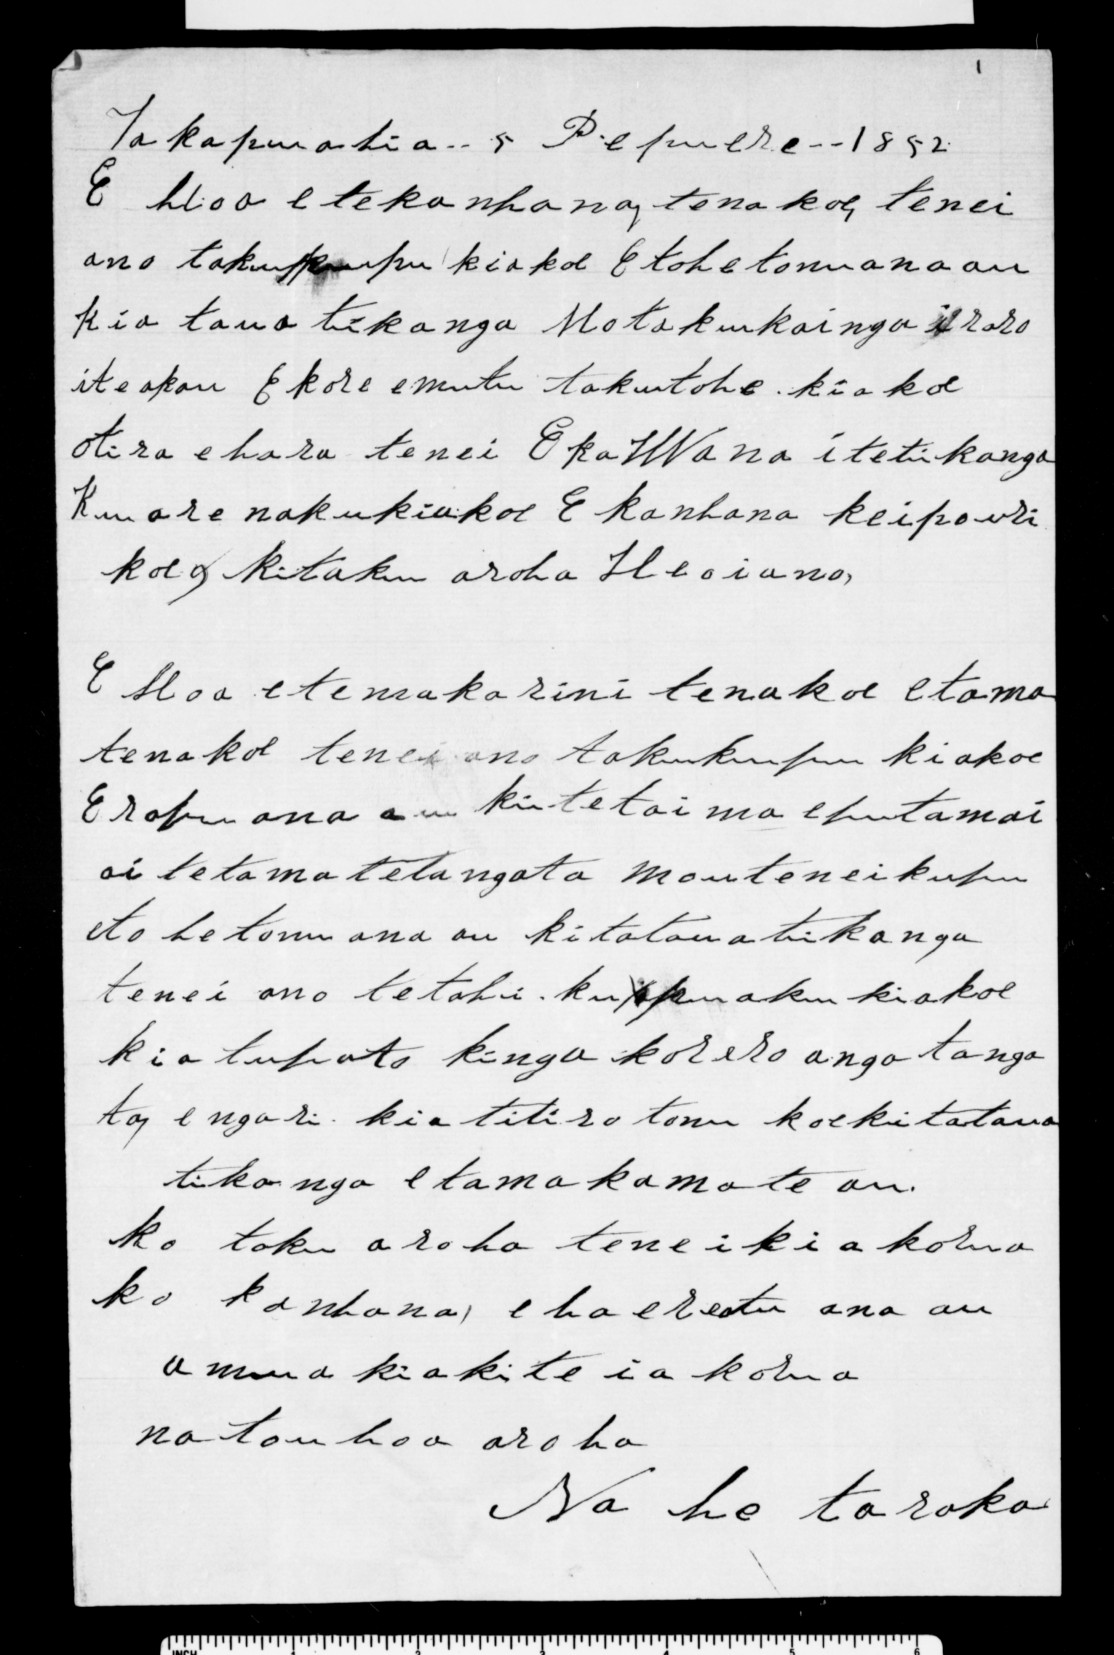 1
Takapuahia -- 5 Pepuere -- 1852
E Hoa e te kanhana, tenakoe, tenei
ano taku kupu kiakoe E tohetonuana au
kia taua tikanga Motakukainga i raro
iteapau E kore emutu takutohe. kiakoe
otira ehara tenei E kaWana i tetikanga
Kuare nakukiakoe E kanhana keipouri
koe, kitaku aroha Heoiano,
E Hoa e temakarini tenakoe etama
tenakoe tenei ano takukupu kiakoe
E rapu ana au kiitetaima eputamai
ai tetamatetangata mauteneikupu
etohetonu ana au kitataua tikanga
tenei ano tetahi. kupu aku kiakoe
kia tupato kinga korero anga tanga
ta, engari. kia titiro tonu koekiitataua
tikanga etamakamate au.
ko taku aroha teneikiakorua
ko kanhana, ehaereatu ana au
amua kiakite ia korua
natouhoa aroha
Na he taraka
INCH 1 2 3 4 5 6